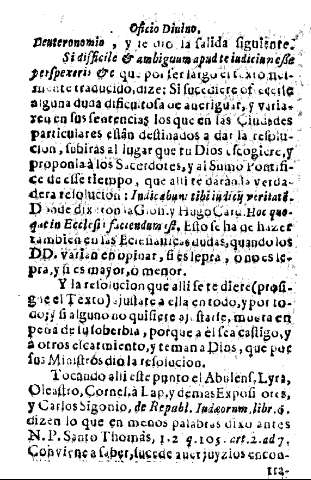 Oficio Divino.
Deuteronomio, y le dio la salida siguiente.
Si difficile & ambiguum apud te iudicium esse
perspexeris &c que por ser largo el texto fiel-
mente traducido, dize: Si sucediere ofrecerse
alguna duda dificultosa de aueriguar, y varia-
ren en sus sentencias los que en las Ciudades
particulares estàn destinados a dar la resolu-
cion, subiràs al lugar que tu Dios escogiere, y
proponla à los Sacerdotes, y al Sumo Pontifi-
ce de esse tiempo, que alli te daràn la verda-
dera resolucion: Indicabunt tibi iudicij veritatē.
Donde dixeron la Glos. y Hugo Card. Hoc quo-
que in Ecclesia faciendum est, Esto se ha de hazer
tambien en las Eclesiasticas dudas, quando los
DD. varian en opinar, si es lepra, ò no es le-
pra, y si es mayor, ò menor.
Y la resolucion que alli se te diere (prosi-
gue el Texto) ajustate a ella en todo, y por to-
do; y si alguno no quisiere ajustarse, muera en
pena de su soberbia, porque a èl sea castigo, y
à otros escarmiento, y teman a Dios, que por
sus Ministros diò la resolucion.
Tocando alli este punto el Abulens, Lyra,
Oleastro, Cornel. à Lap, y demas Expositores,
y Carlos Sigonio, de Republ. Iudæorum, libr. 6.
dizen lo que en menos palabras dixo antes
N. P. Santo Thomàs, 1. 2 q. 105. art. 2. ad 7.
Conviene a saber, sucede auer juyzios encon-
tra-